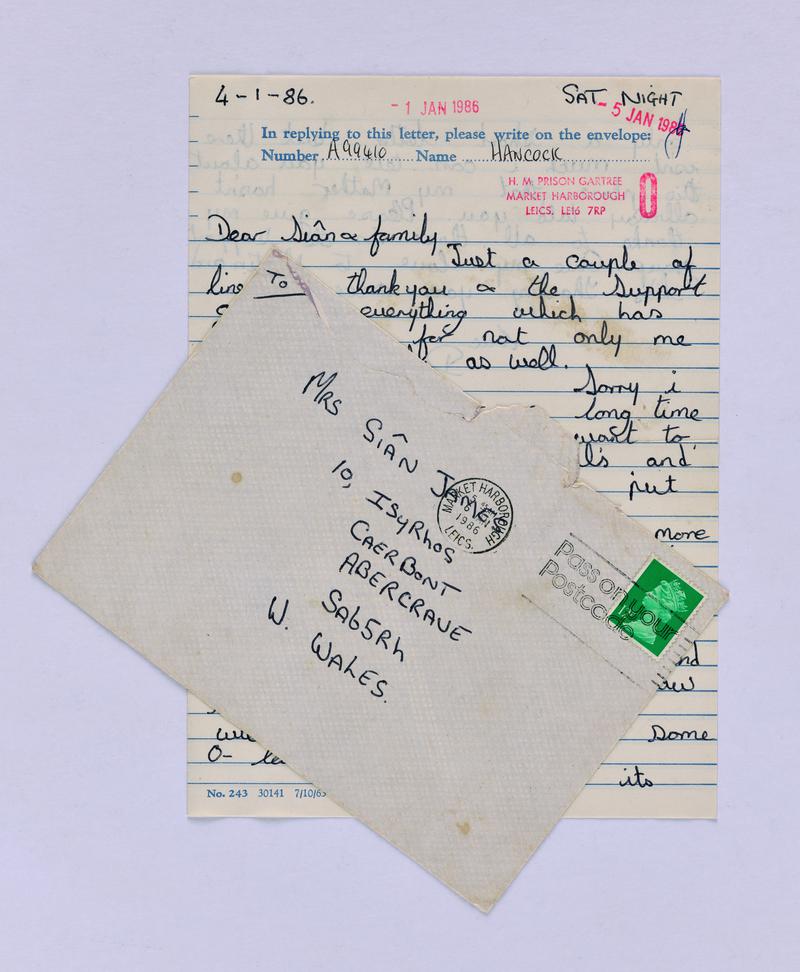 4-1-86.
- 1 JAN 1986
SAT NIGHT
- 5 JAN 198
In replying to this letter, please write on the envelope:
Number A99410 Name HANCOCK
H. M. PRISON GARTREE
MARKET HARBOROUGH
LEICS, LE16 7RP
0
Dear Siân & family
Just a couple of
line thankyou & the support
everything which has
for not only me
as well.
Sorry i
long time
want to
and
put
more
Some
O-
its
No. 243 30141 7/10/65
TO
MRS SIÂN JAMES
10, ISyRhos
CAERBONT
ABERCRAVE
SA65Rh
W. WALES.
MARKET HARBOROUGH
1986
LEICS.
Pass on your
Postcode